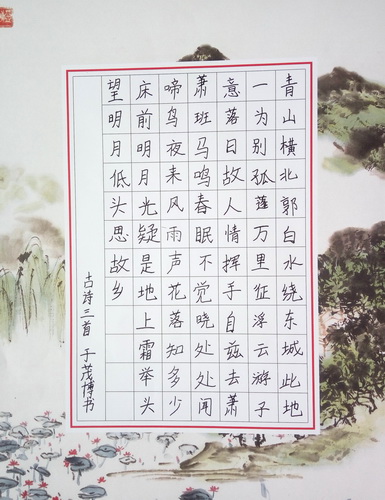 青山横北郭白水绕东城此地
一为别孤蓬万里征浮云游子
意落日故人情挥手自兹去萧
萧班马鸣春眠不觉晓处处闻
啼鸟夜来风雨声花落知多少
床前明月光疑是地上霜举头
望明月低头思故乡
古诗三首 于茂博书